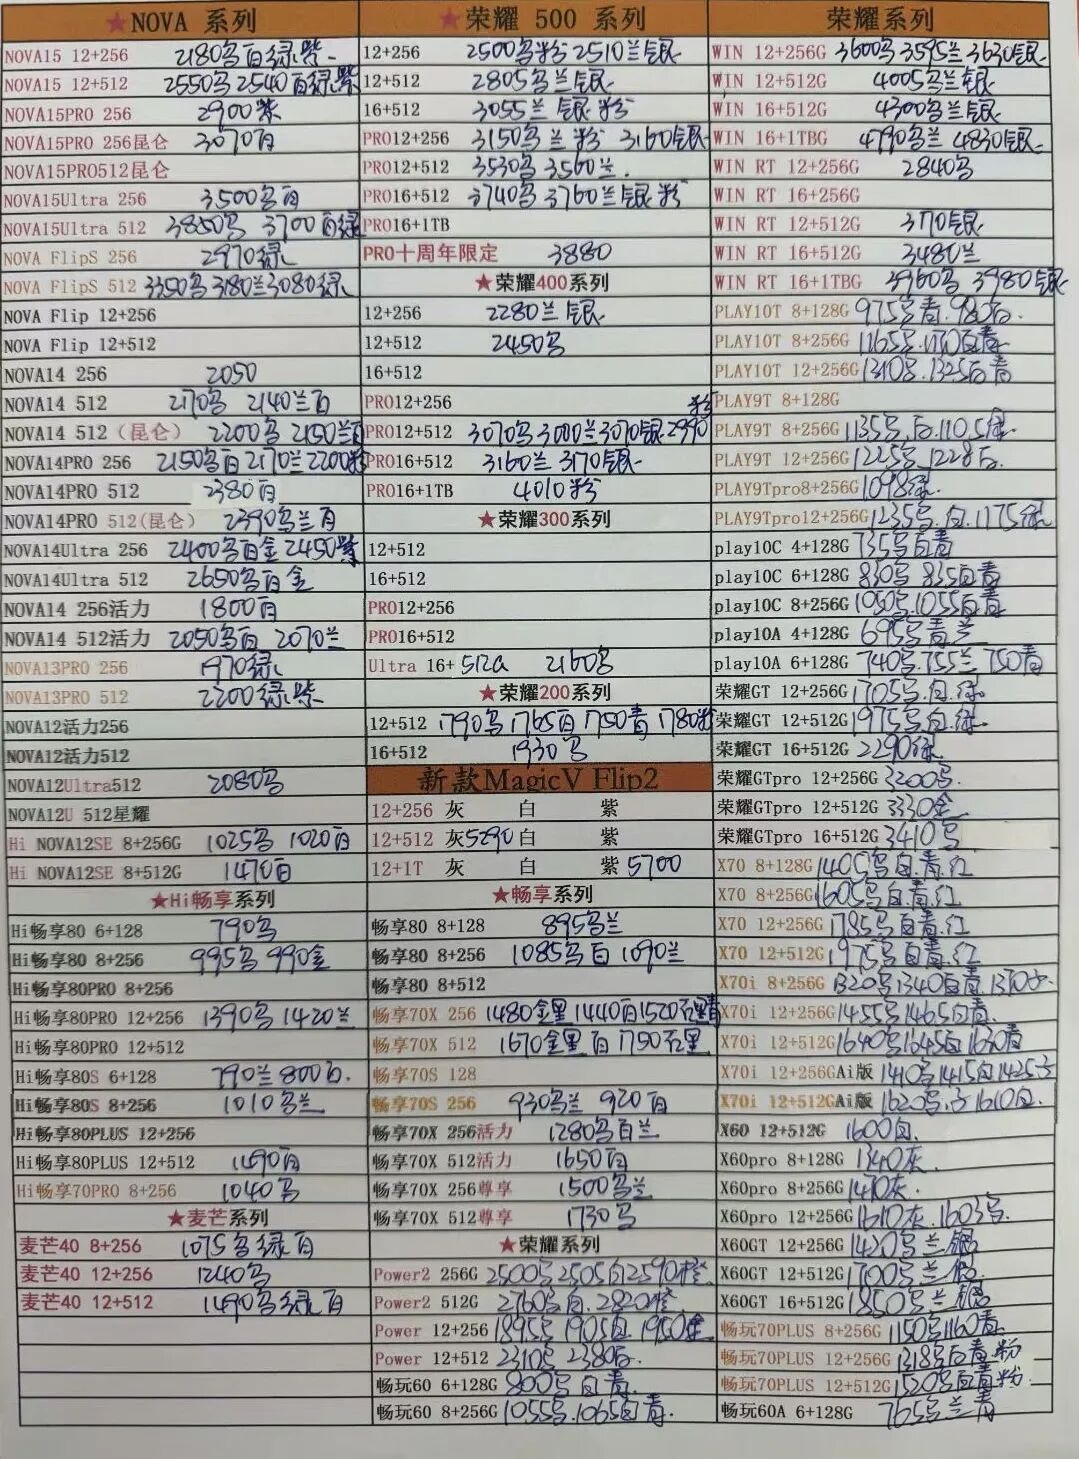 ★NOVA 系列
NOVA15 12+256 2180乌百绿紫
NOVA15 12+512 2550乌2540百绿紫
NOVA15PRO 256 2900紫
NOVA15PRO 256昆仑 3070百
NOVA15PRO512昆仑
NOVA15Ultra 256 3500乌百
NOVA15Ultra 512 3850乌 3700百绿
NOVA FlipS 256 2970绿
NOVA FlipS 512 3350乌3180兰3080绿
NOVA Flip 12+256
NOVA Flip 12+512
NOVA14 256 2050
NOVA14 512 2170乌 2140兰百
NOVA14 512(昆仑) 2200乌
NOVA14PRO 256 2150乌百2170兰2200粉
NOVA14PRO 512 2380百
NOVA14PRO 512(昆仑) 2390乌兰百
NOVA14Ultra 256 2400乌百金2450紫
NOVA14Ultra 512 2650乌百金
NOVA14 256活力 1800百
NOVA14 512活力 2050乌百 2070兰
NOVA13PRO 256 1970绿
NOVA13PRO 512 2200绿紫
NOVA12活力256
NOVA12活力512
NOVA12Ultra512 2080乌
NOVA12U 512星耀
Hi NOVA12SE 8+256G 1025乌 1020百
Hi NOVA12SE 8+512G 1470百
★Hi畅享系列
Hi畅享80 6+128 790乌
Hi畅享80 8+256 995乌990金
Hi畅享80PRO 8+256
Hi畅享80PRO 12+256 1390乌1420兰
Hi畅享80PRO 12+512
Hi畅享80S 6+128 790兰800白.
Hi畅享80S 8+256 1010乌兰
Hi畅享80PLUS 12+256
Hi畅享80PLUS 12+512 1490百
Hi畅享70PRO 8+256 1040乌
★麦芒系列
麦芒40 8+256 1075乌绿百
麦芒40 12+256 1240乌
麦芒40 12+512 1490乌绿百
★荣耀 500 系列
12+256 2500乌粉2510兰银
12+512 2805乌兰银
16+512 3055兰银粉
PRO12+256 3150乌兰粉 3160银
PRO12+512 3530乌3560兰.
PRO16+512 3740乌3760兰银粉
PRO16+1TB
PRO十周年限定 3880
★荣耀400系列
12+256 2280兰银
12+512 2450乌
16+512
PRO12+256
PRO12+512 3070乌3000兰3070银2990粉
PRO16+512 3160兰3170银
PRO16+1TB 4010粉
★荣耀300系列
12+512
16+512
PRO12+256
PRO16+512
Ultra 16+512G 2160乌
★荣耀200系列
12+512 1790乌1765百1750青1780粉
16+512 1930乌
新款MagicV Flip2
12+256 灰 白 紫
12+512 灰5290白 紫
12+1T 灰 白 紫5700
★畅享系列
畅享80 8+128 895乌兰
畅享80 8+256 1085乌百1090兰
畅享80 8+512
畅享70X 256 1480金黑1440百1520
畅享70X 512 1670金黑百1750
畅享70S 128
畅享70S 256 930乌兰 920百
畅享70X 256活力 1280乌百兰
畅享70X 512活力 1650百
畅享70X 256尊享 1500乌兰
畅享70X 512尊享 1730乌
★荣耀系列
Power2 256G 2500乌2505白2590橙
Power2 512G 2760乌白.2820橙
Power 12+256 1895乌1905白
Power 12+512 2310乌2380白.
畅玩60 6+128G 800乌白青.
畅玩60 8+256G 1055乌.1065白青.
荣耀系列
WIN 12+256G 3600乌3595兰3630银
WIN 12+512G 4005乌兰银
WIN 16+512G 4300乌兰银
WIN 16+1TBG 4790乌兰 4830银
WIN RT 12+256G 2840乌
WIN RT 16+256G
WIN RT 12+512G 3170银
WIN RT 16+512G 3480兰
WIN RT 16+1TBG 3960乌 3980银
PLAY10T 8+128G 975乌青.980白.
PLAY10T 8+256G 1165乌.1170白青
PLAY10T 12+256G 1310乌.1325白青
PLAY9T 8+128G
PLAY9T 8+256G 1135乌.白.1105绿
PLAY9T 12+256G 1225乌.1228白.
PLAY9Tpro8+256G 1098绿.
PLAY9Tpro12+256G 1235乌.白.1175绿
play10C 4+128G 735乌白青
play10C 6+128G 830乌 835白青
play10C 8+256G 1050乌.1055白青
play10A 4+128G 695乌青兰
play10A 6+128G 740乌.755兰750青
荣耀GT 12+256G 1705乌.白.绿
荣耀GT 12+512G 1975乌.白.绿
荣耀GT 16+512G 2290绿
荣耀GTpro 12+256G 3200乌.
荣耀GTpro 12+512G 3330金
荣耀GTpro 16+512G 3410乌
X70 8+128G 1405乌白.青.红
X70 8+256G 1605乌白.青.红
X70 12+256G 1785乌白青.红
X70 12+512G 1975乌白青.红
X70i 8+256G 1320乌1340白青.
X70i 12+256G 1455乌1465白青.
X70i 12+512G 1640乌1645白1630青
X70i 12+256GAi版 1410乌1415白
X70i 12+512GAi版 1620乌.1610白.
X60 12+512G 1600白.
X60pro 8+128G 1340灰.
X60pro 8+256G 1470灰.
X60pro 12+256G 1610灰.1603乌.
X60GT 12+256G 1420乌兰银
X60GT 12+512G 1700乌兰银
X60GT 16+512G 1850乌兰银
畅玩70PLUS 8+256G 1150乌1160青
畅玩70PLUS 12+256G 1318乌白青.粉
畅玩70PLUS 12+512G 1520乌白青粉
畅玩60A 6+128G 765乌兰青